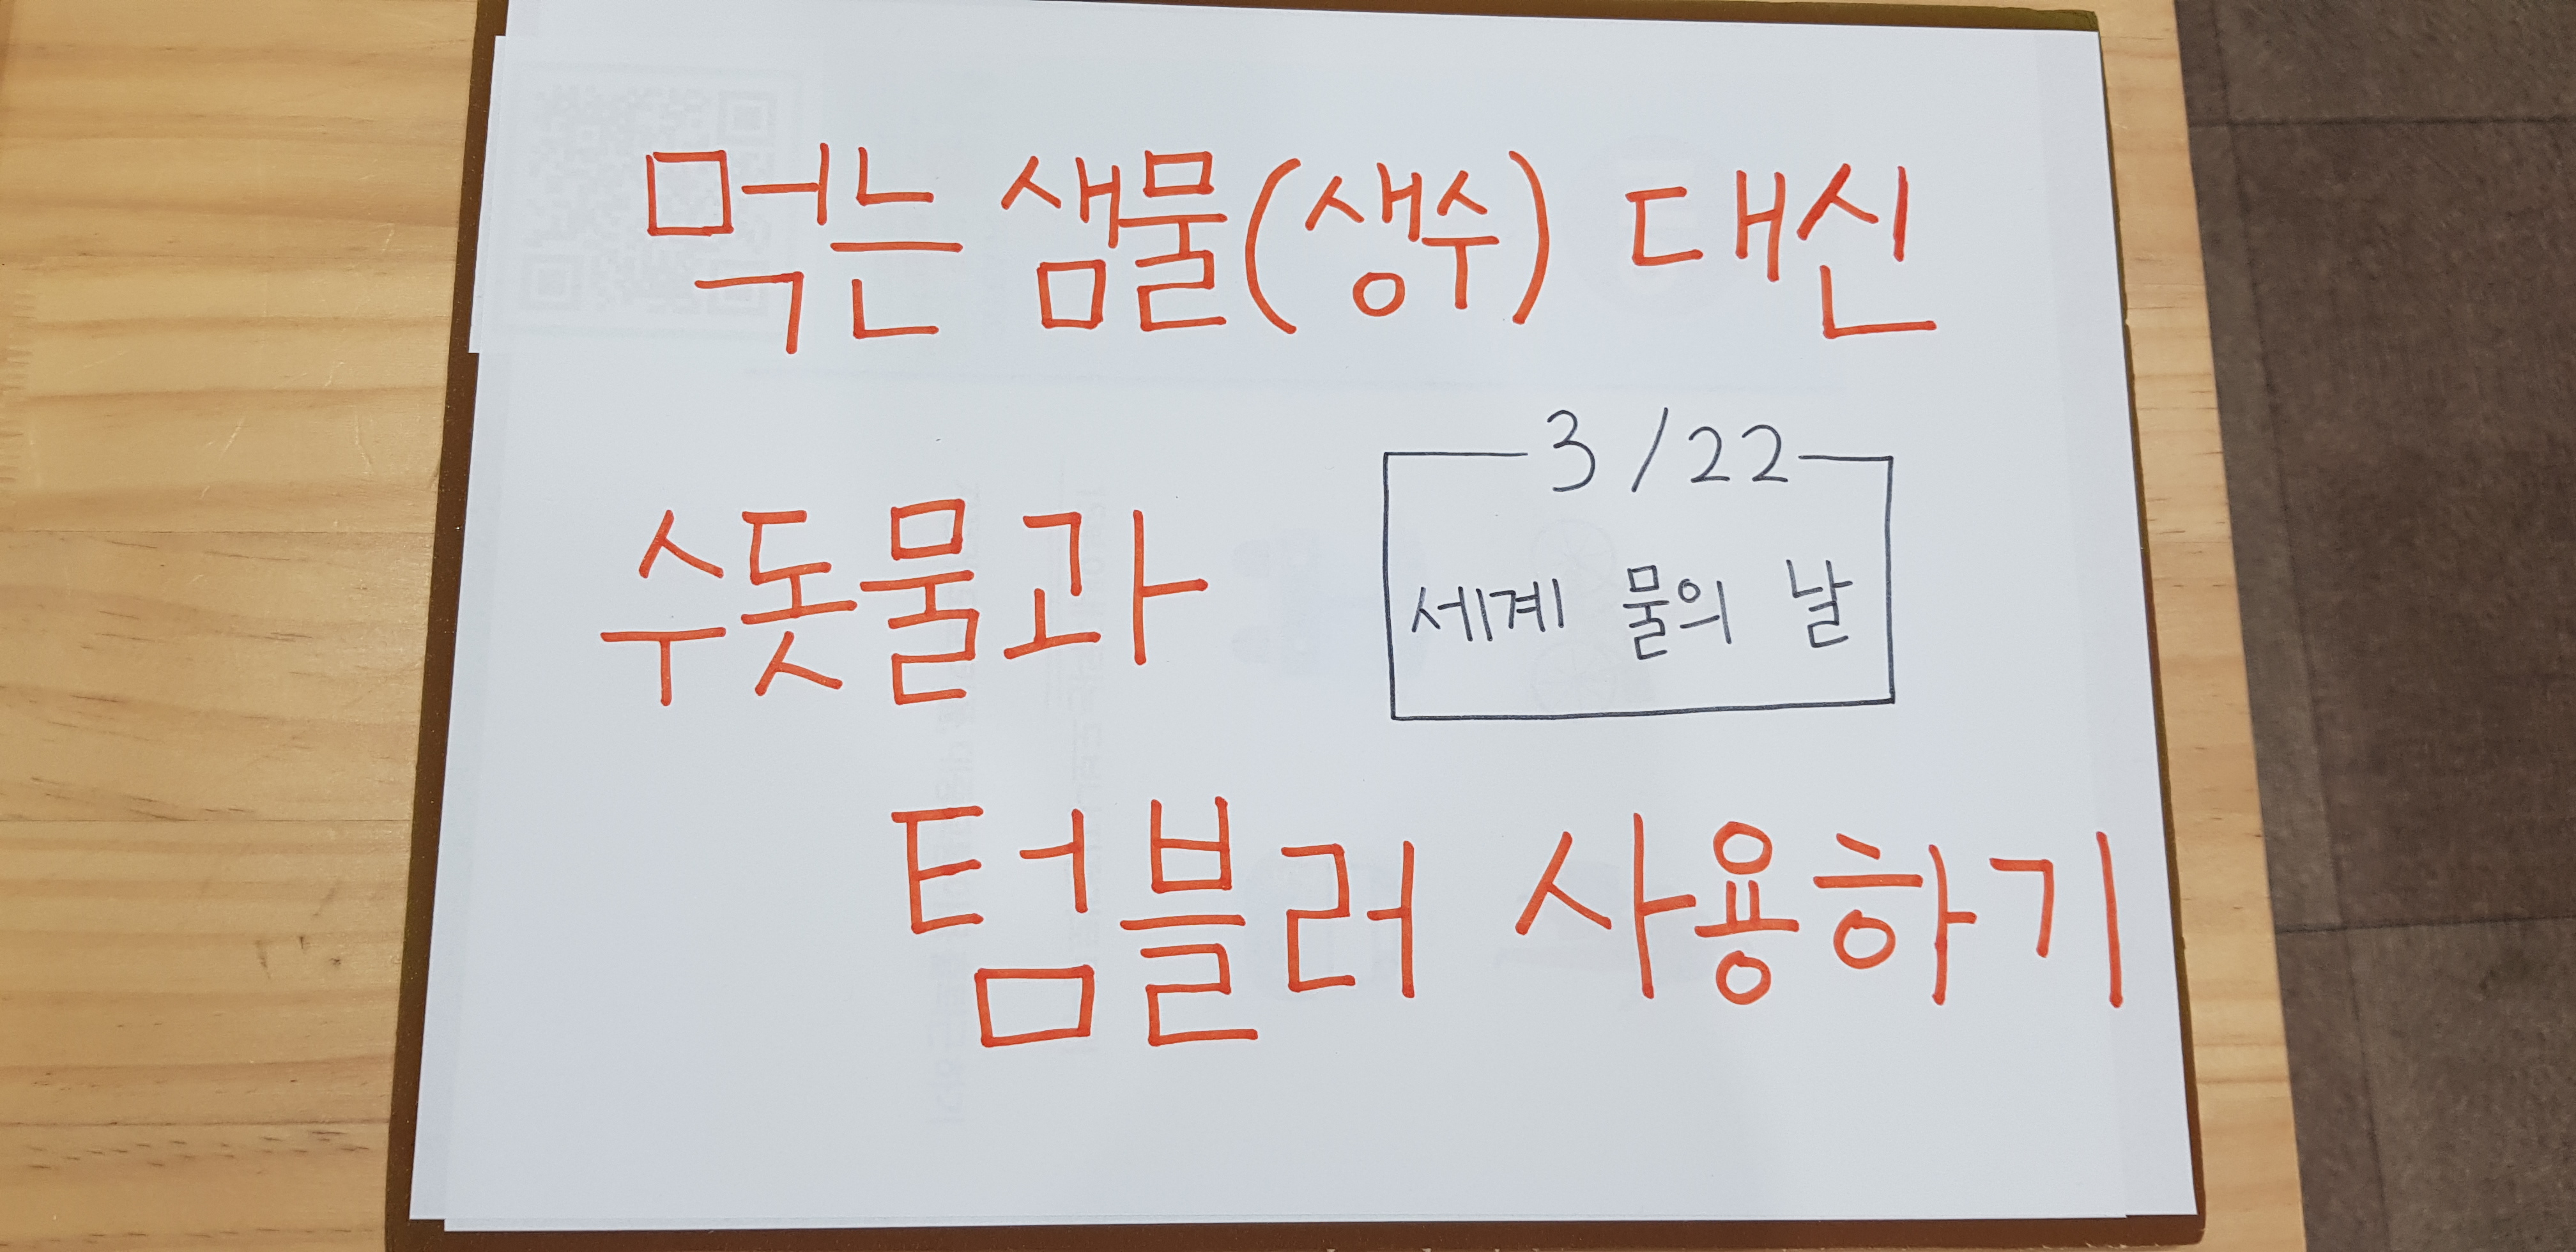 먹는 샘물(생수) 대신
수돗물과
3/22
세계 물의 날
텀블러 사용하기